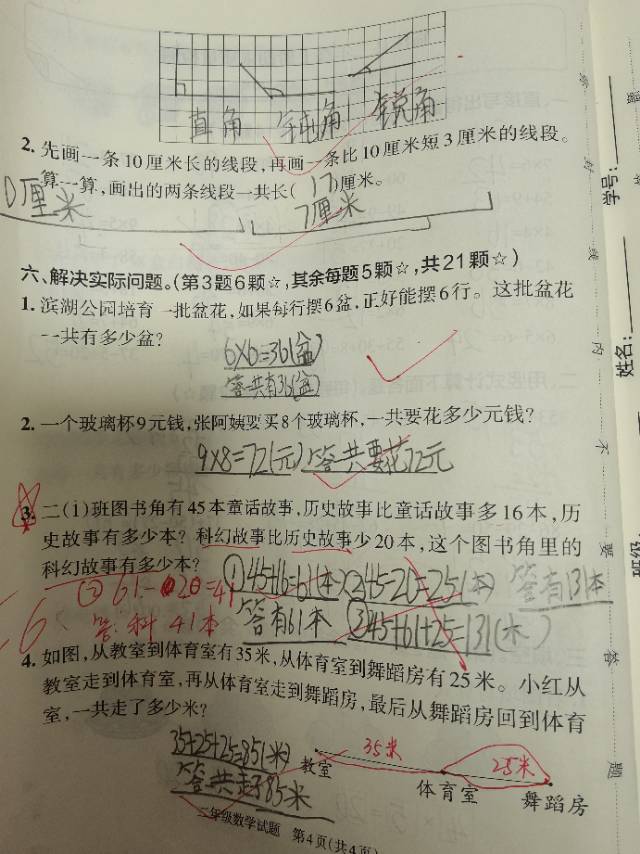 直角 钝角 锐角
2. 先画一条10厘米长的线段,再画一条比10厘米短3厘米的线段。
算一算,画出的两条线段一共长(17)厘米。
0厘米 7厘米
六、解决实际问题。(第3题6颗☆,其余每题5颗☆,共21颗☆)
1. 滨湖公园培育一批盆花,如果每行摆6盆,正好能摆6行。这批盆花
一共有多少盆?
6×6=36(盆)
答共有36(盆)
2. 一个玻璃杯9元钱,张阿姨要买8个玻璃杯,一共要花多少元钱?
9×8=72(元) 答共要花72元
3. 二(1)班图书角有45本童话故事,历史故事比童话故事多16本,历
史故事有多少本?科幻故事比历史故事少20本,这个图书角里的
科幻故事有多少本?
①45+16=61(本) ②45-20=25(本) 答有131本
② 61-20=41
答有61本 ③45+61+25=131(本)
答:科 41本
-6
4. 如图,从教室到体育室有35米,从体育室到舞蹈房有25米。小红从
教室走到体育室,再从体育室走到舞蹈房,最后从舞蹈房回到体育
室,一共走了多少米?
35+25+25=85(米)
答共走了85米
35米 25米
教室 体育室 舞蹈房
二年级数学试题 第4页(共4页)
学号:
姓名:
班级
密 封 线 内 不 要 答 题